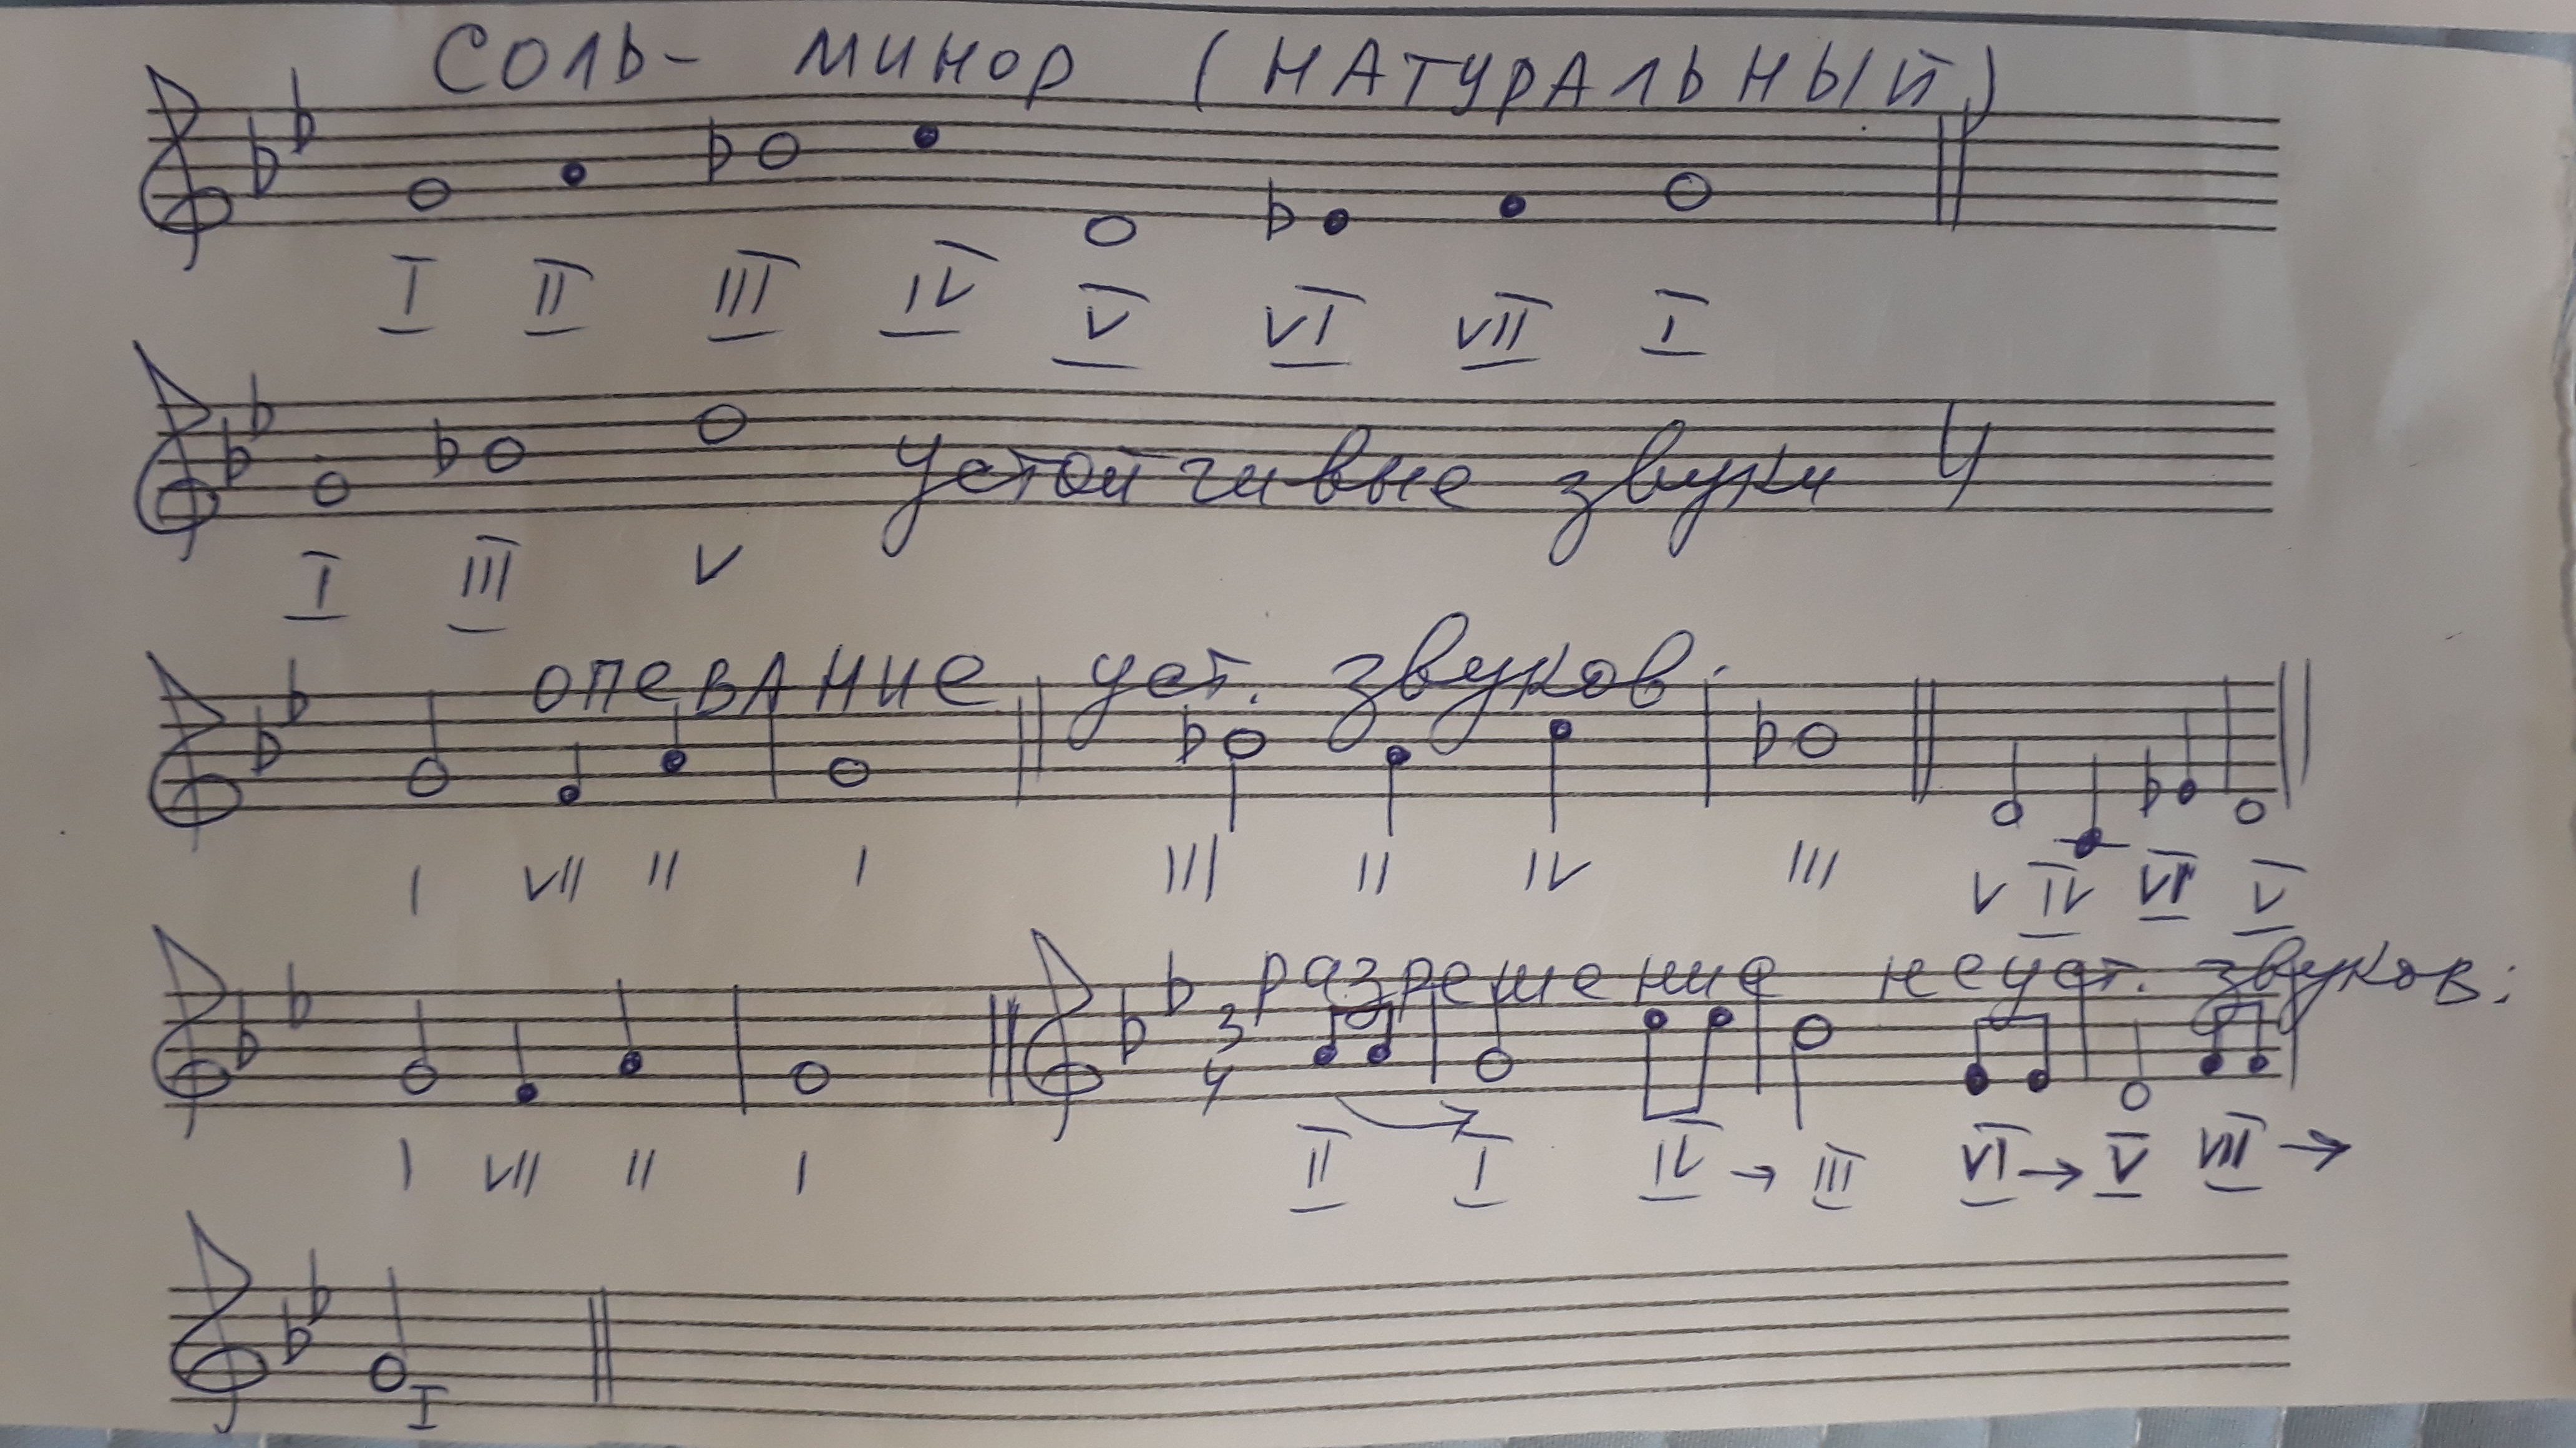 СОЛЬ- МИНОР (НАТУРАЛЬНЫЙ)
I II III IV V VI VII I
Устойчивые звуки
I III V
опевание уст. звуков.
I VII II I III II IV III V IV VI V
разрешение неуст. звуков:
3
4
I VII II I II I IV → III VI → V VII →
I